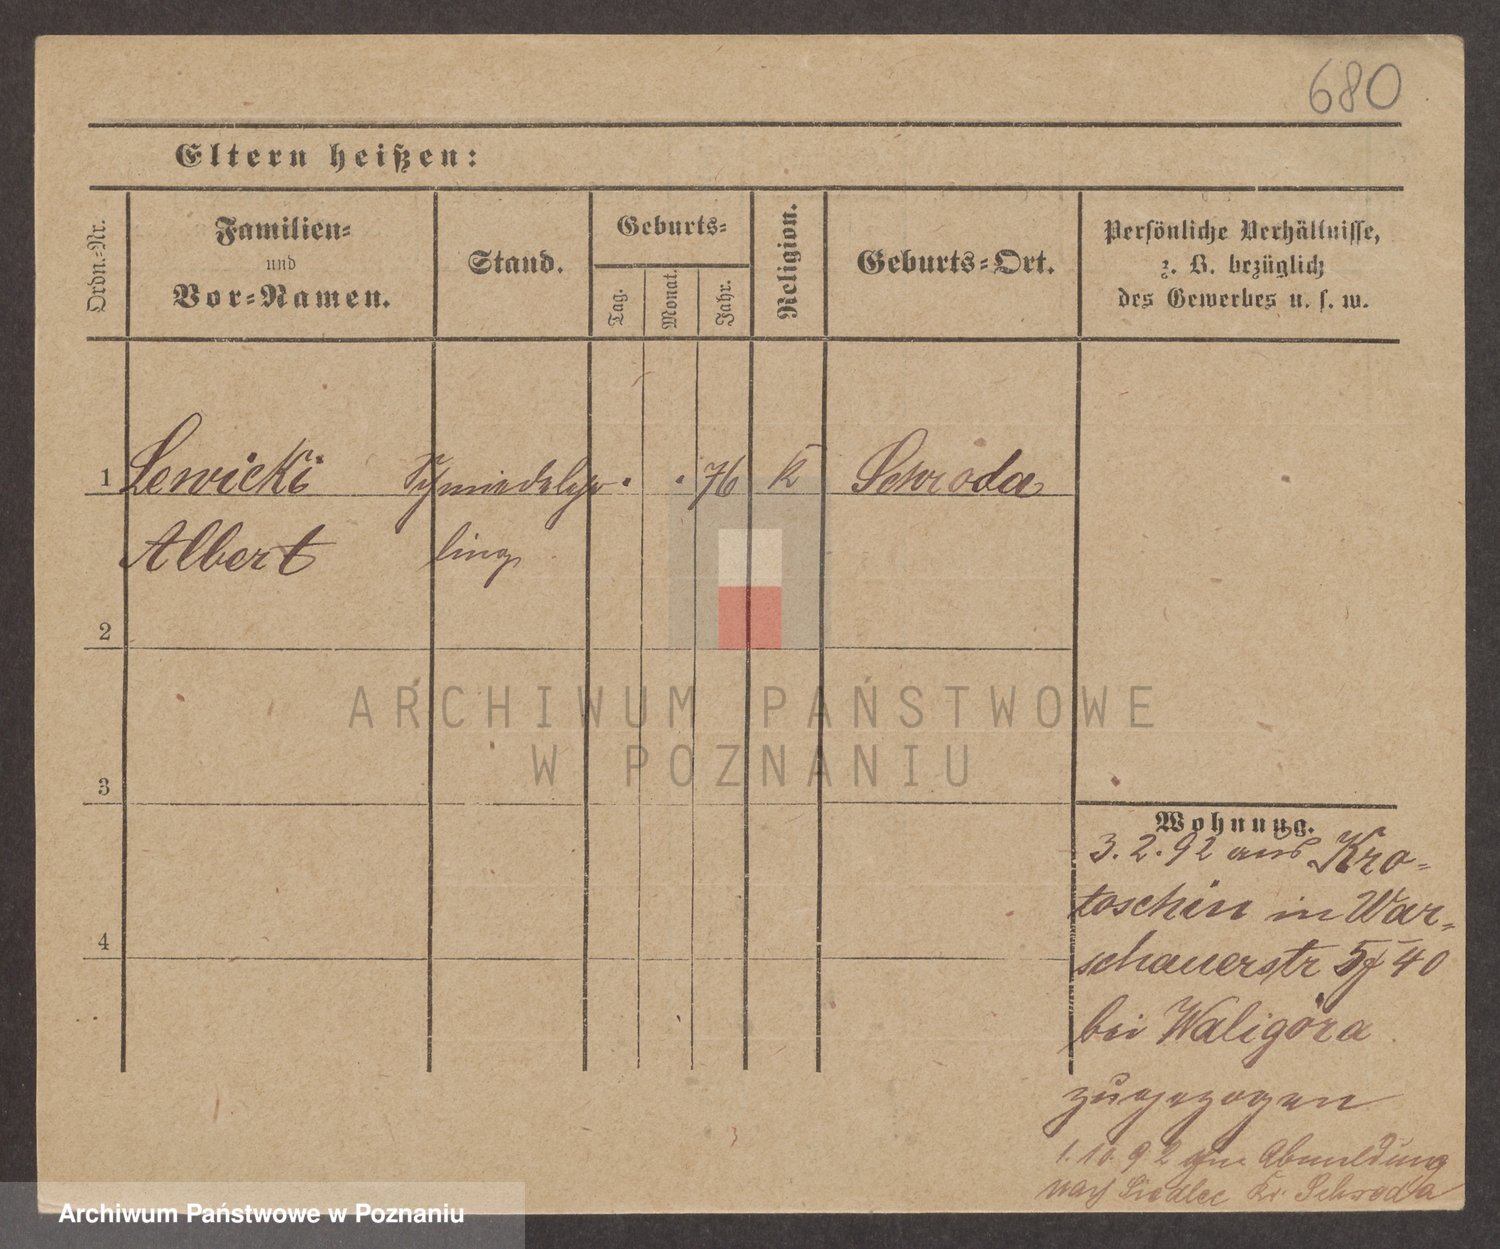 680
Eltern heißen:
Ordn.-Nr.
Familien-
und
Vor-Namen.
Stand.
Geburts-
Tag.
Monat.
Jahr.
Religion.
Geburts-Ort.
Persönliche Verhältnisse,
z. B. bezüglich
des Gewerbes u. s. w.
1 Lewicki Schmiedelehr . . 76 k Schroda
Albert ling
2
3
4
ARCHIWUM PAŃSTWOWE
W POZNANIU
Wohnung.
3. 2. 92 aus Kro-
toschin in War-
schauerstr 40
bei Waligóra
zugezogen
1. 10. 92 Abmeldung
nach Siedlec Kr. Schroda
Archiwum Państwowe w Poznaniu